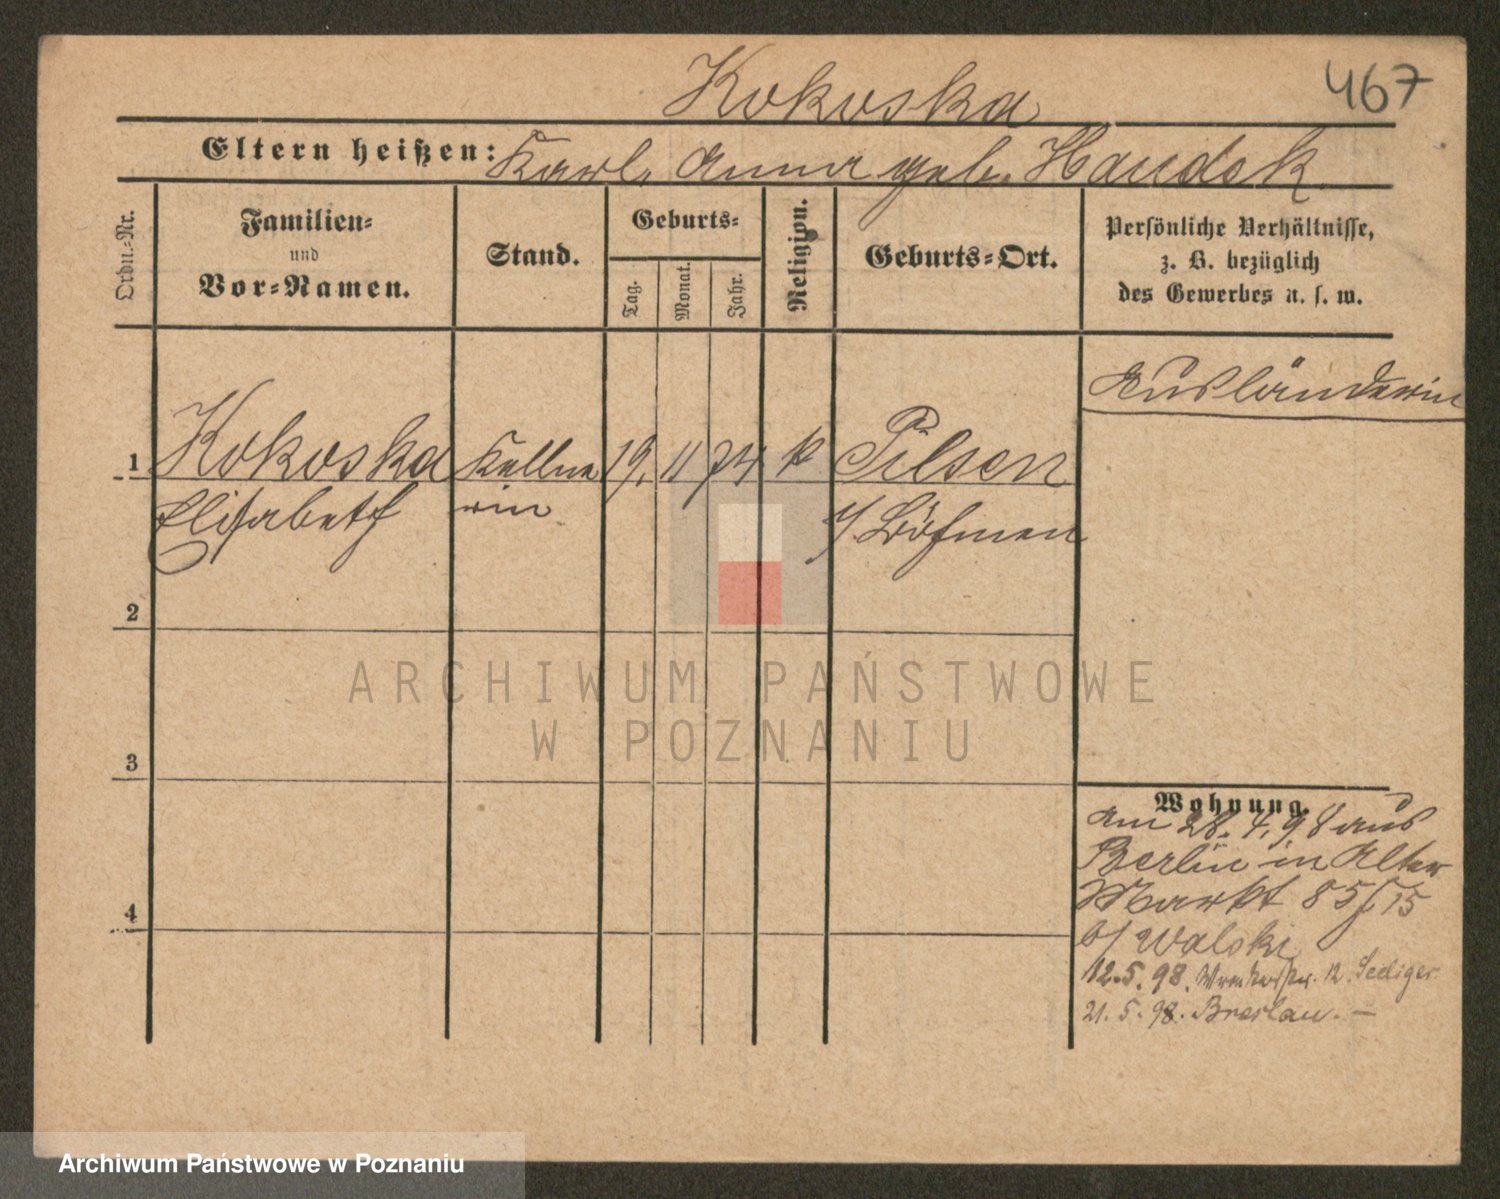 Kokoska
467
Eltern heißen: Karl, Anna geb. Haudek
Ordn.-Nr.
Familien-
und
Vor-Namen.
Stand.
Geburts-
Tag.
Monat.
Jahr.
Religion.
Geburts-Ort.
Persönliche Verhältnisse,
z. B. bezüglich
des Gewerbes u. s. w.
Ausländerin
1 Kokoska Kellne 19. 11 74 k Pilsen
Elisabeth rin i/ Böhmen
2
3
4
Wohnung.
am 28. 4. 98 aus
Berlin in Alter
Markt 85
b/ Walski
12. 5. 98. 12. Seeliger
21. 5. 98. Breslau. —
ARCHIWUM PAŃSTWOWE
W POZNANIU
Archiwum Państwowe w Poznaniu